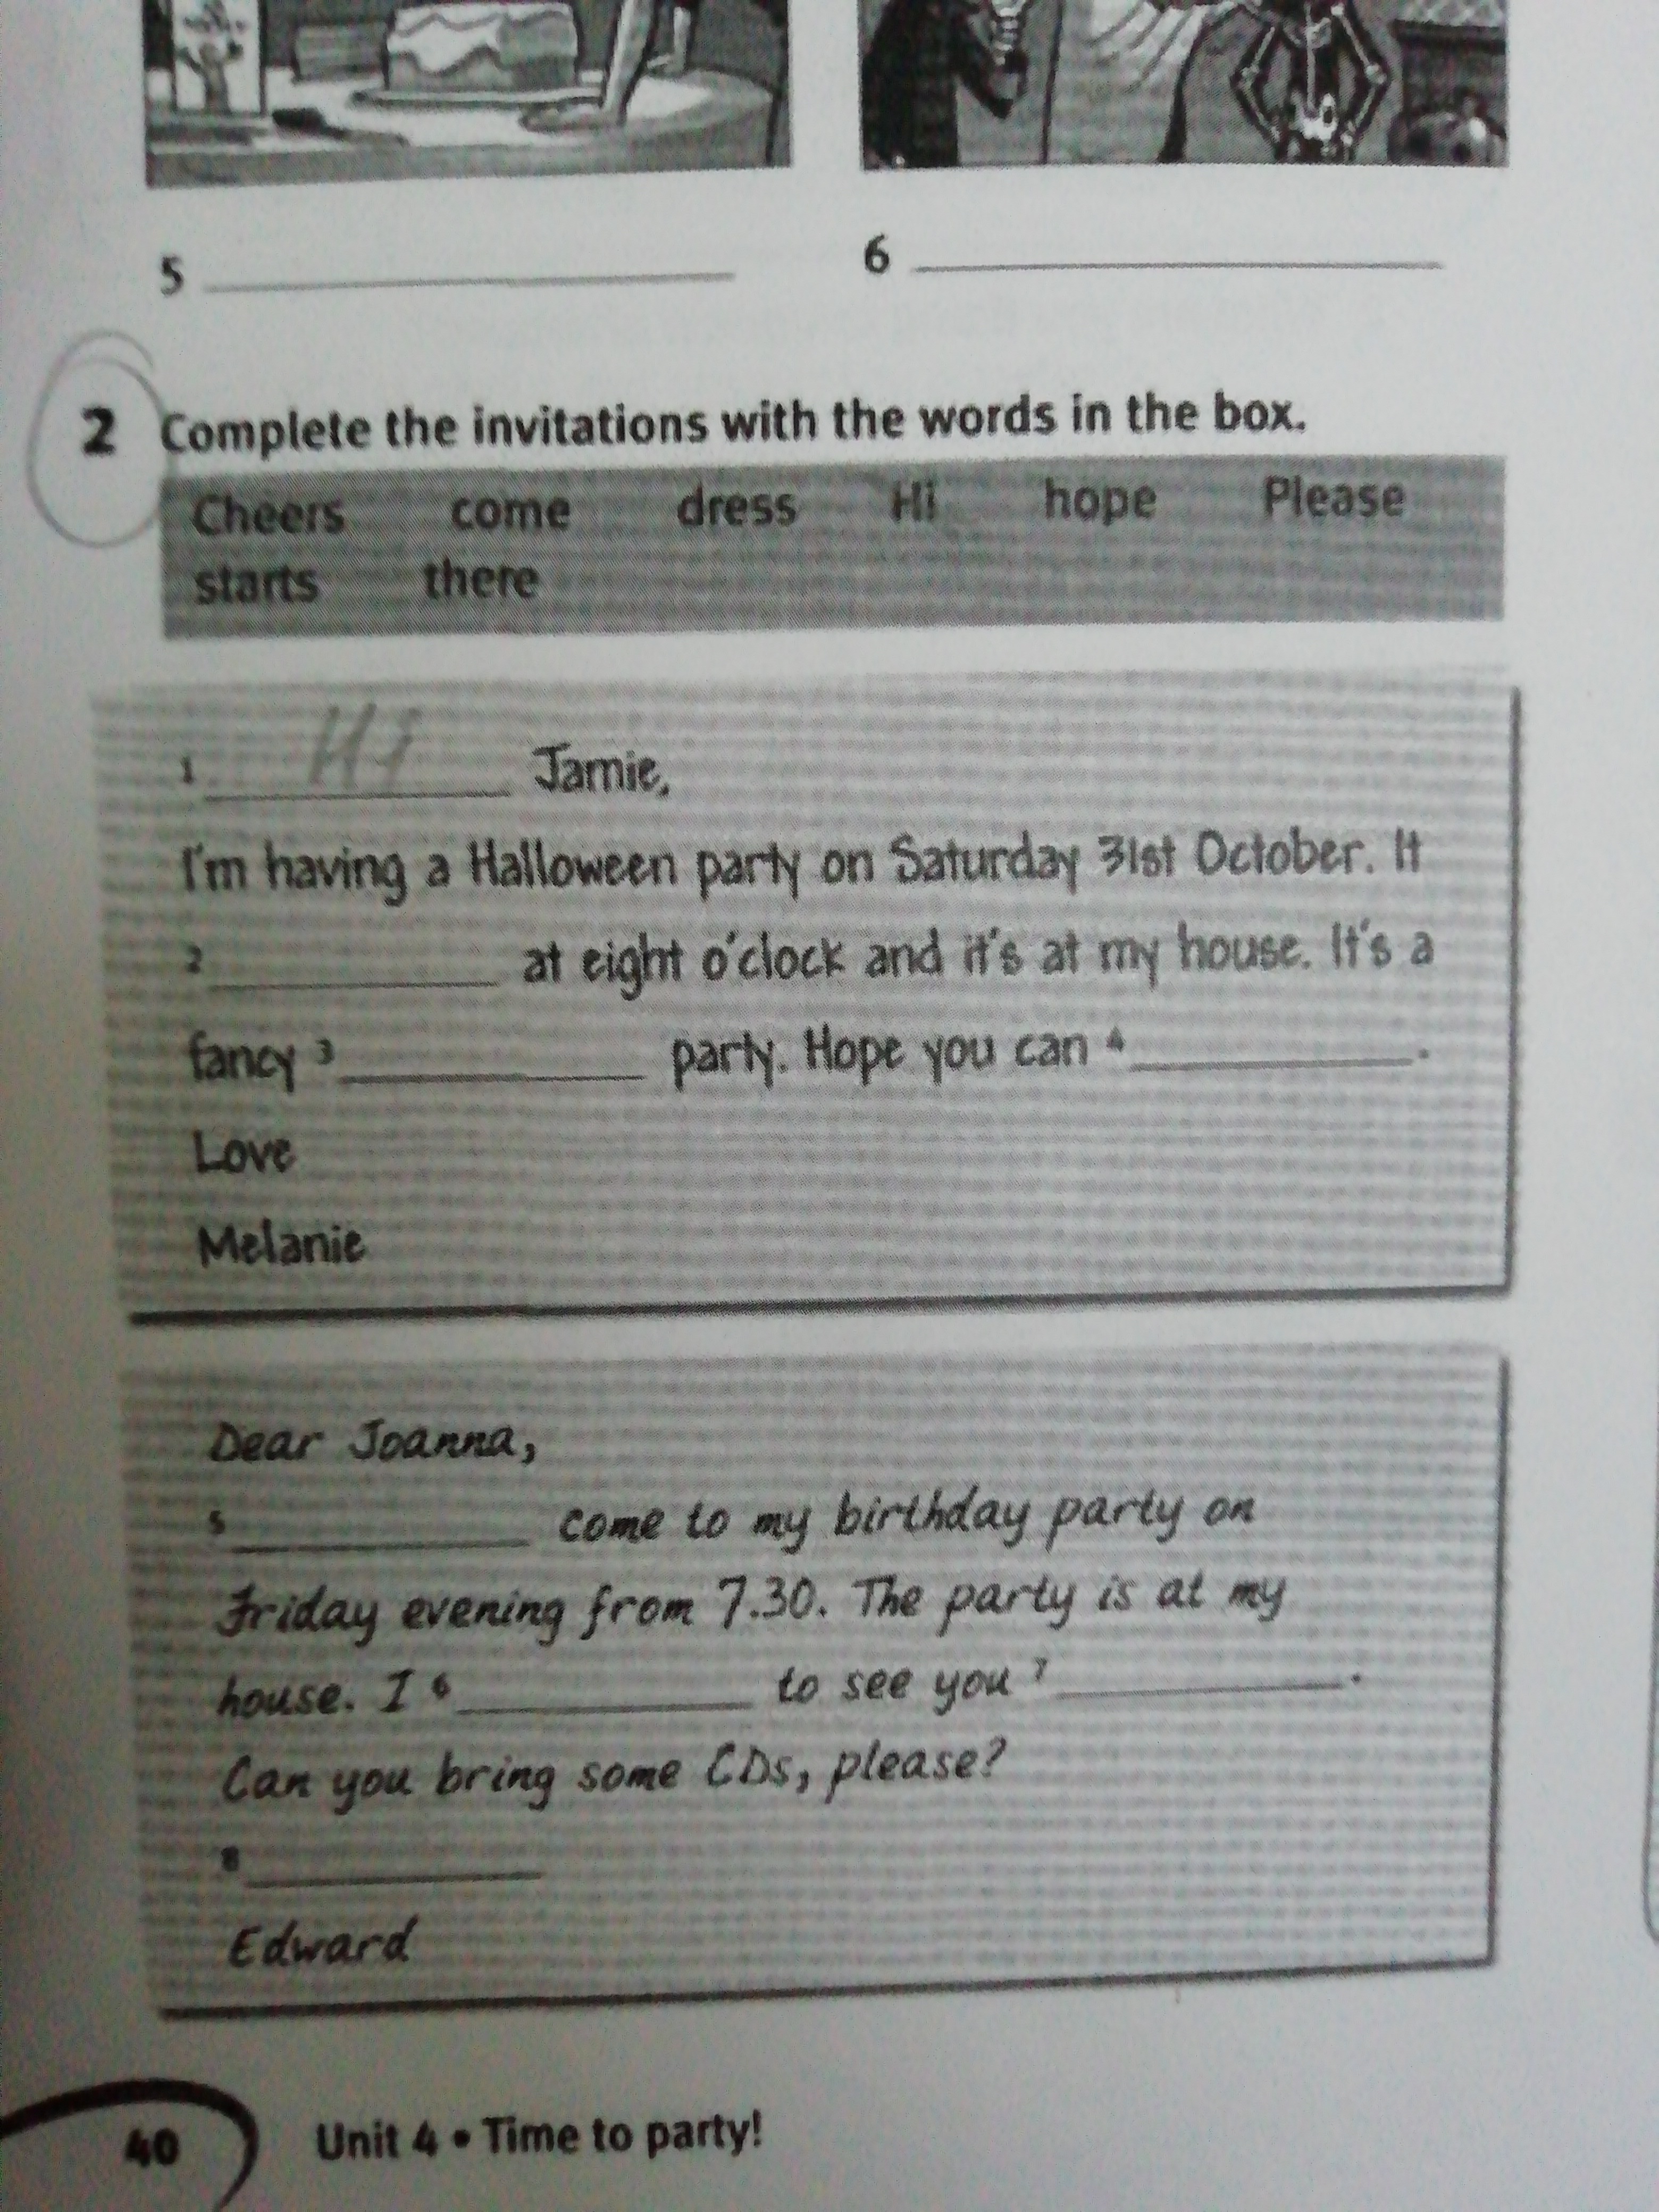 5 ____________ 6 ____________
2 Complete the invitations with the words in the box.
Cheers come dress Hi hope Please
starts there
1 Hi Jamie,
I'm having a Halloween party on Saturday 31st October. It
2 ____________ at eight o'clock and it's at my house. It's a
fancy 3 ____________ party. Hope you can 4 ____________.
Love
Melanie
Dear Joanna,
5 ____________ come to my birthday party on
Friday evening from 7.30. The party is at my
house. I 6 ____________ to see you 7 ____________.
Can you bring some CDs, please?
8 ____________
Edward
40 Unit 4 • Time to party!